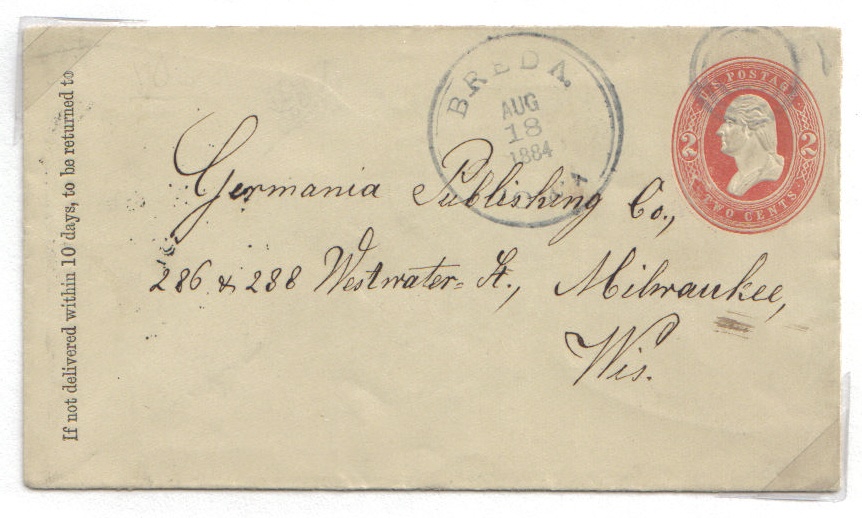 If not delivered within 10 days, to be returned to
BREDA.
AUG
18
1884
IOWA
U.S. POSTAGE
2 2
TWO CENTS
Germania Publishing Co.,
286 & 288 Westwater= St., Milwaukee,
Wis.